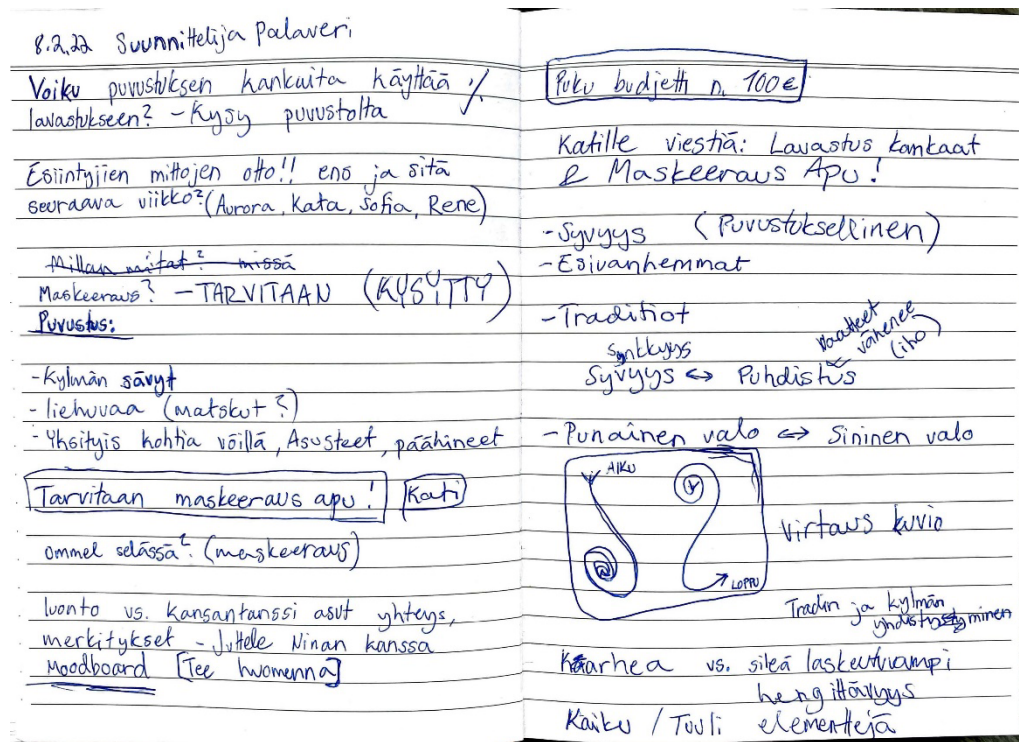 8.2.22 Suunnittelija Palaveri
Voiku puvustuksen kankuita käyttää %
lavastukseen? - Kysy puvustolta
Esiintyjien mittojen otto!! ens ja sitä
seuraava viikko? (Aurora, Kata, Sofia, Rene)
Millan mitat? missä
Maskeeraus? - TARVITAAN (KYSYTTY)
Puvustus:
- Kylmän sävyt
- liehuvaa (matskut?)
- Yksityis kohtia völlä, Asusteet, päähineet
Tarvitaan maskeeraus apu! Kati
ommel selässä? (maskeeraus)
luonto vs. kansantanssi asut yhteys,
merkitykset - Juttele Ninan kanssa
Moodboard [Tee huomenna]
Puku budjetti n. 100€
Katille viestiä: Lavastus kankaat
& Maskeeraus Apu!
- Syvyys (Puvustuksellinen)
- Esivanhemmat
- Traditiot
synkkyys
vaatteet
vähenee
(iho)
Syvyys ↔ Puhdistus
- Punainen valo ↔ Sininen valo
ALKU
LOPPU
Virtaus kuvio
Tradin ja kylmän
yhdistyminen
Karhea vs. sileä laskeutuvampi
hengittävyys
Kaiku / Tuuli elementtejä